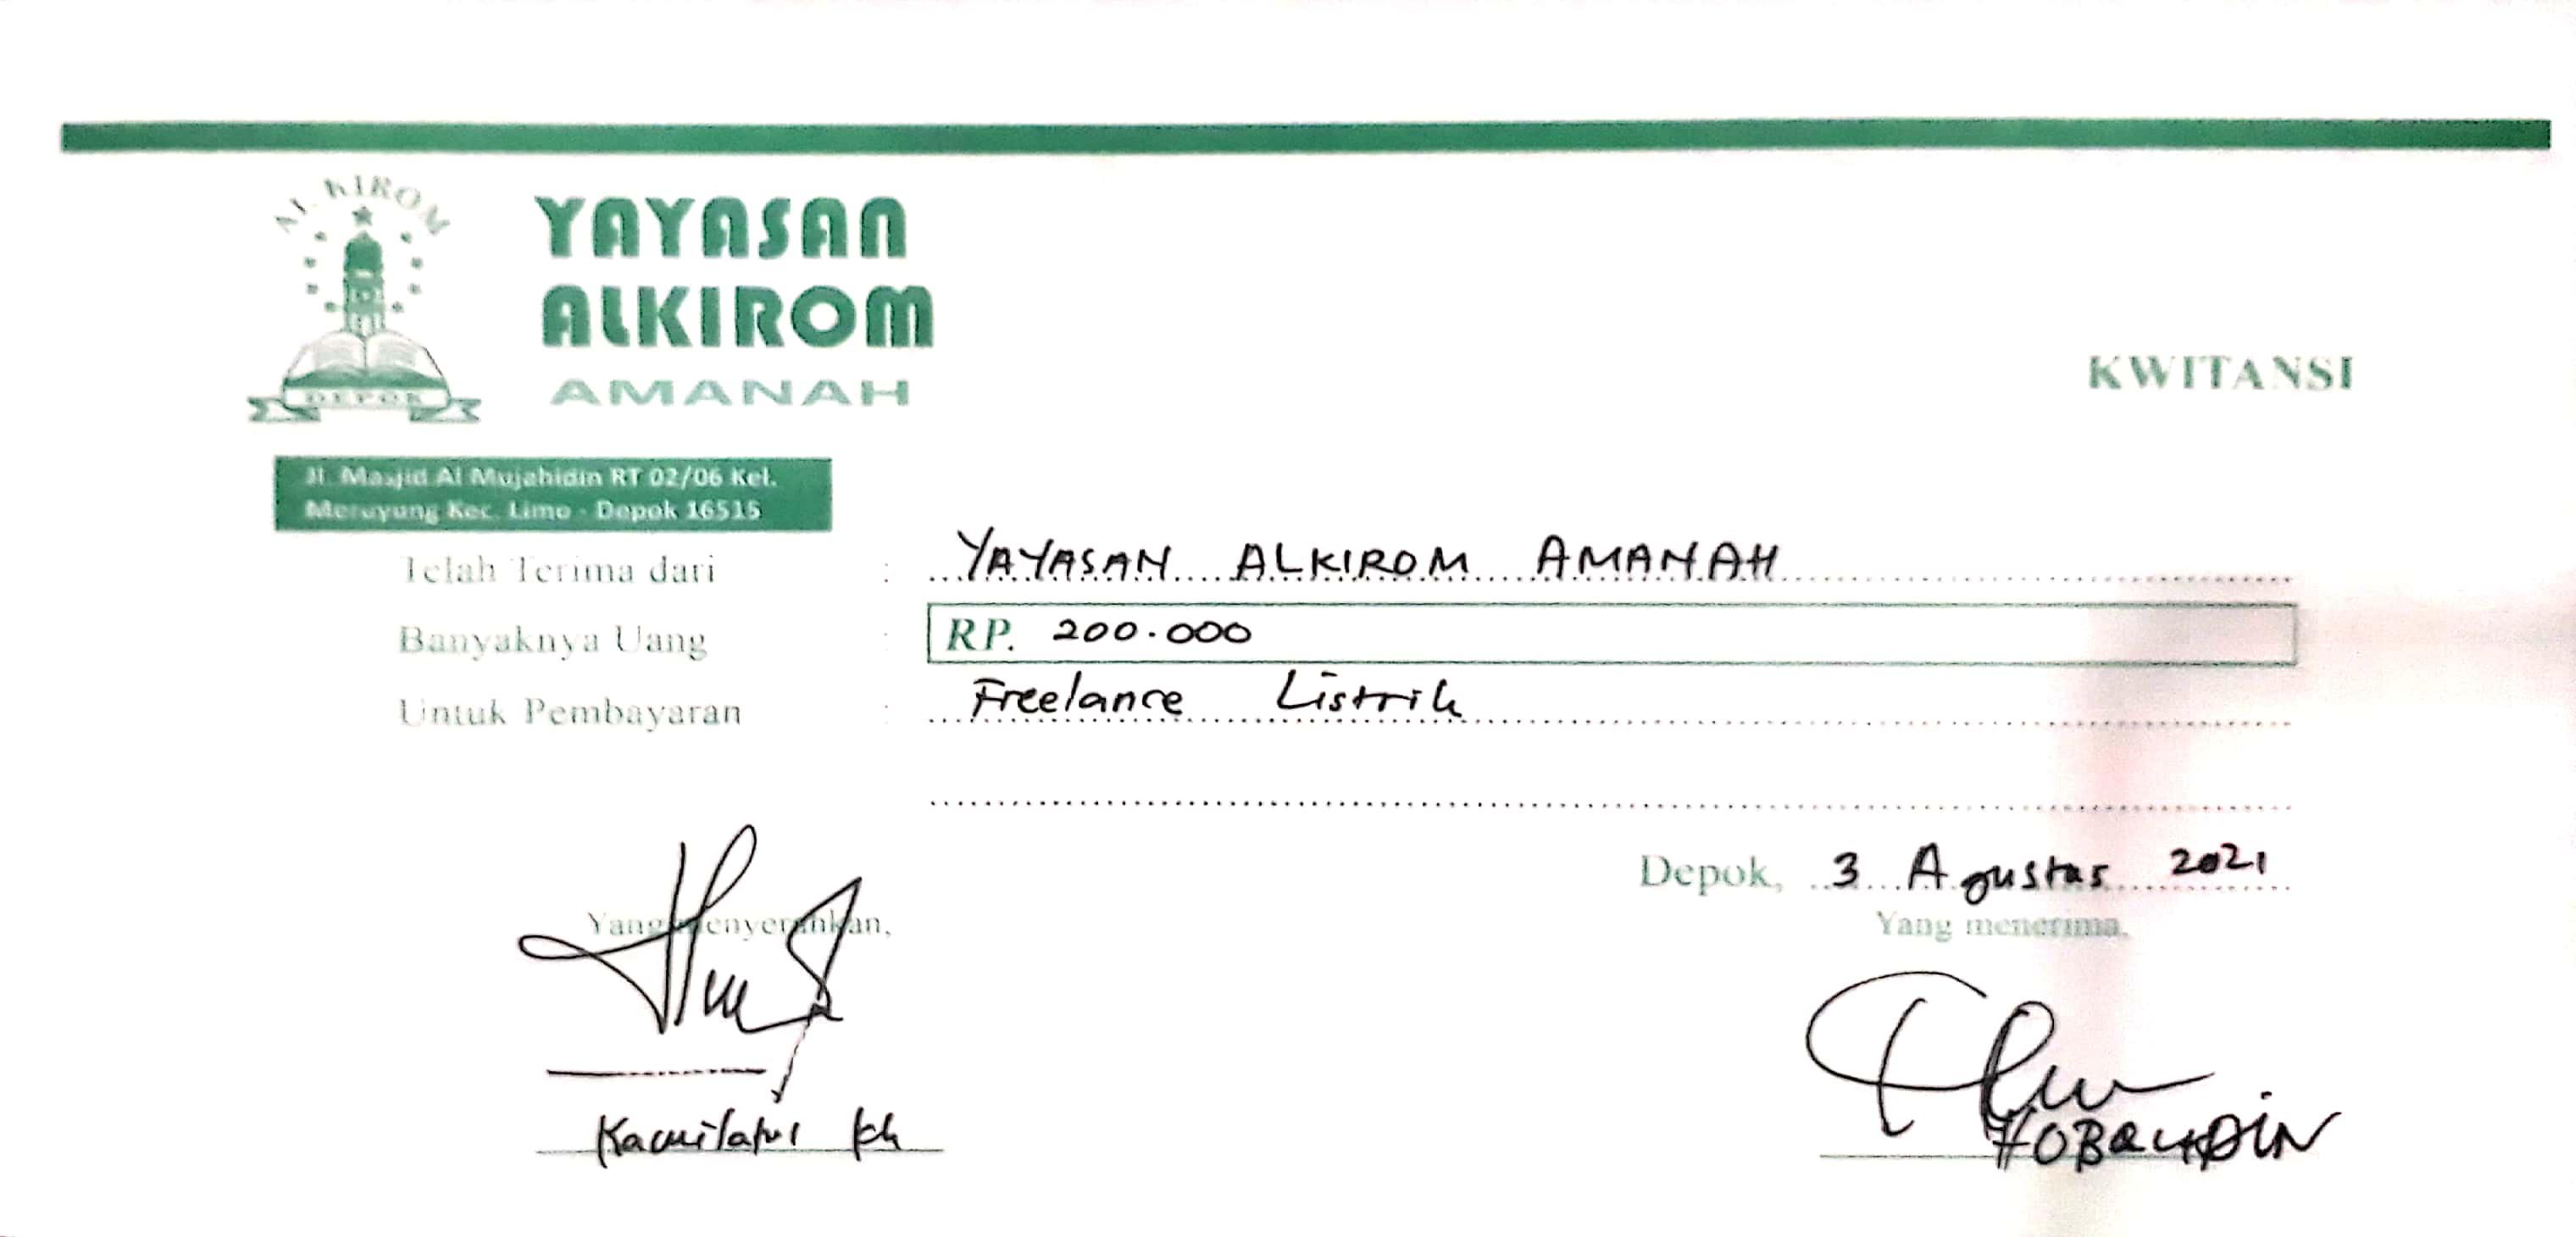 AL KIROM
DEPOK
YAYASAN
ALKIROM
AMANAH
KWITANSI
Jl. Masjid Al Mujahidin RT 02/06 Kel.
Meruyung Kec. Limo - Depok 16515
Telah Terima dari : YAYASAN ALKIROM AMANAH
Banyaknya Uang : RP. 200.000
Untuk Pembayaran : Freelance Listrik
Depok, 3 Agustus 2021
Yang menyerahkan,
Yang menerima,
Kamilatul kh